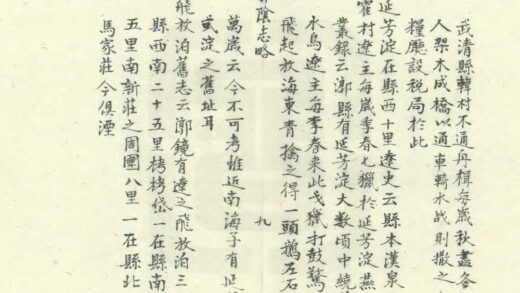 武清縣韓村不通舟楫每歲秋盡各
人架木成橋以通車轎水战則撒之
糧廳設稅局於此
延芳淀在縣西十里遼史云縣本漢泉
霍村遼主每歲季春弋獵於延芳淀燕
業錄云漷縣有延芳淀大数頃中繞
水鳥遼主每季春來此弋獵打鼓驚
飛起放海東青擒之得一頭鵝左右
陰志略
九
萬歲云今不可考惟近南海子有延
弎淀之舊址耳
飛放泊舊志云漷鏡有遼之飛放泊三
縣西南二十五里栲栲垈一在縣南
五里南新莊之周圍八里一在縣北
馬家莊今俱湮